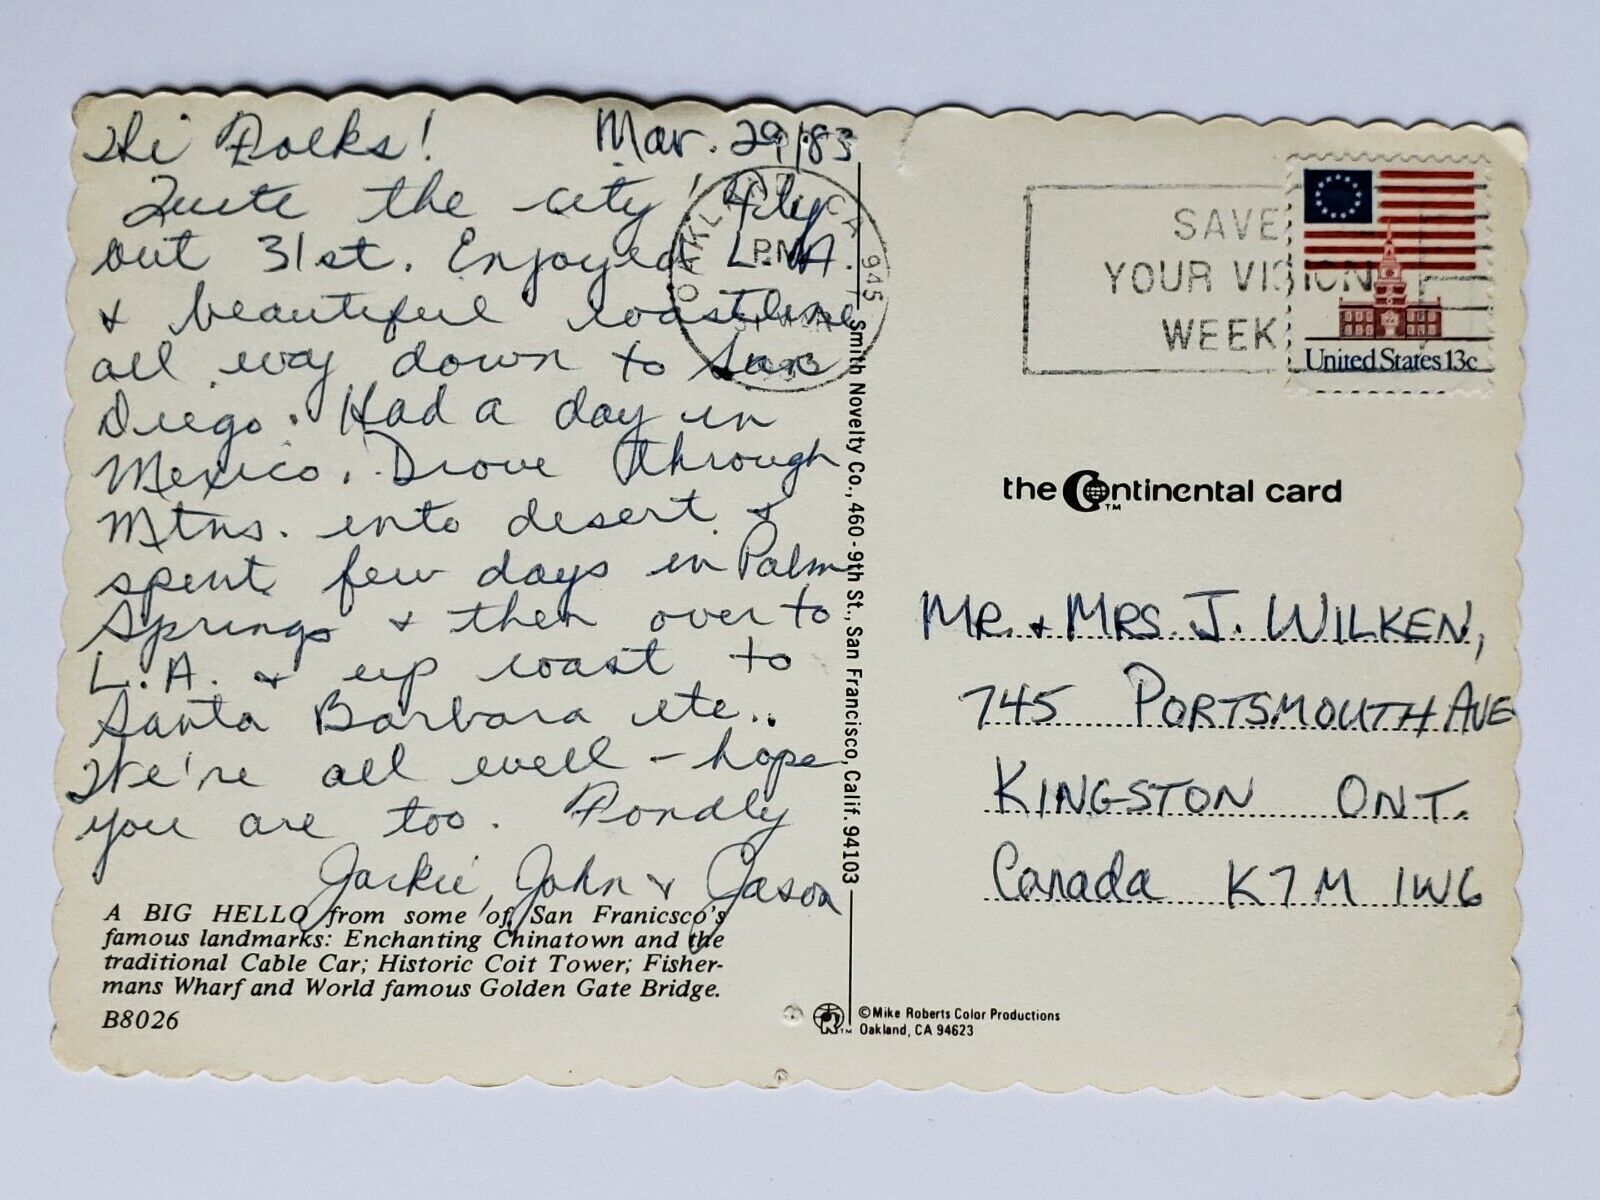 Hi Folks! Mar. 29/83
Quite the city! Fly
out 31st. Enjoyed L.A.
& beautiful coastline
all way down to San
Diego. Had a day in
Mexico. Drove through
Mtns. into desert &
spent few days in Palm
Springs & then over to
L.A. & up coast to
Santa Barbara etc..
We're all well – hope
you are too. Fondly
Jackie, John & Jason
A BIG HELLO from some of San Franicsco's
famous landmarks: Enchanting Chinatown and the
traditional Cable Car; Historic Coit Tower; Fisher-
mans Wharf and World famous Golden Gate Bridge.
B8026
OAKLAND, CA 945
PM
31 MAR
1983
Smith Novelty Co., 460-9th St., San Francisco, Calif. 94103
SAVE
YOUR VISION
WEEK
United States 13c
the Continental card
TM
MR. & MRS. J. WILKEN,
745 PORTSMOUTH AVE
KINGSTON ONT.
Canada K7M 1W6
TM
©Mike Roberts Color Productions
Oakland, CA 94623